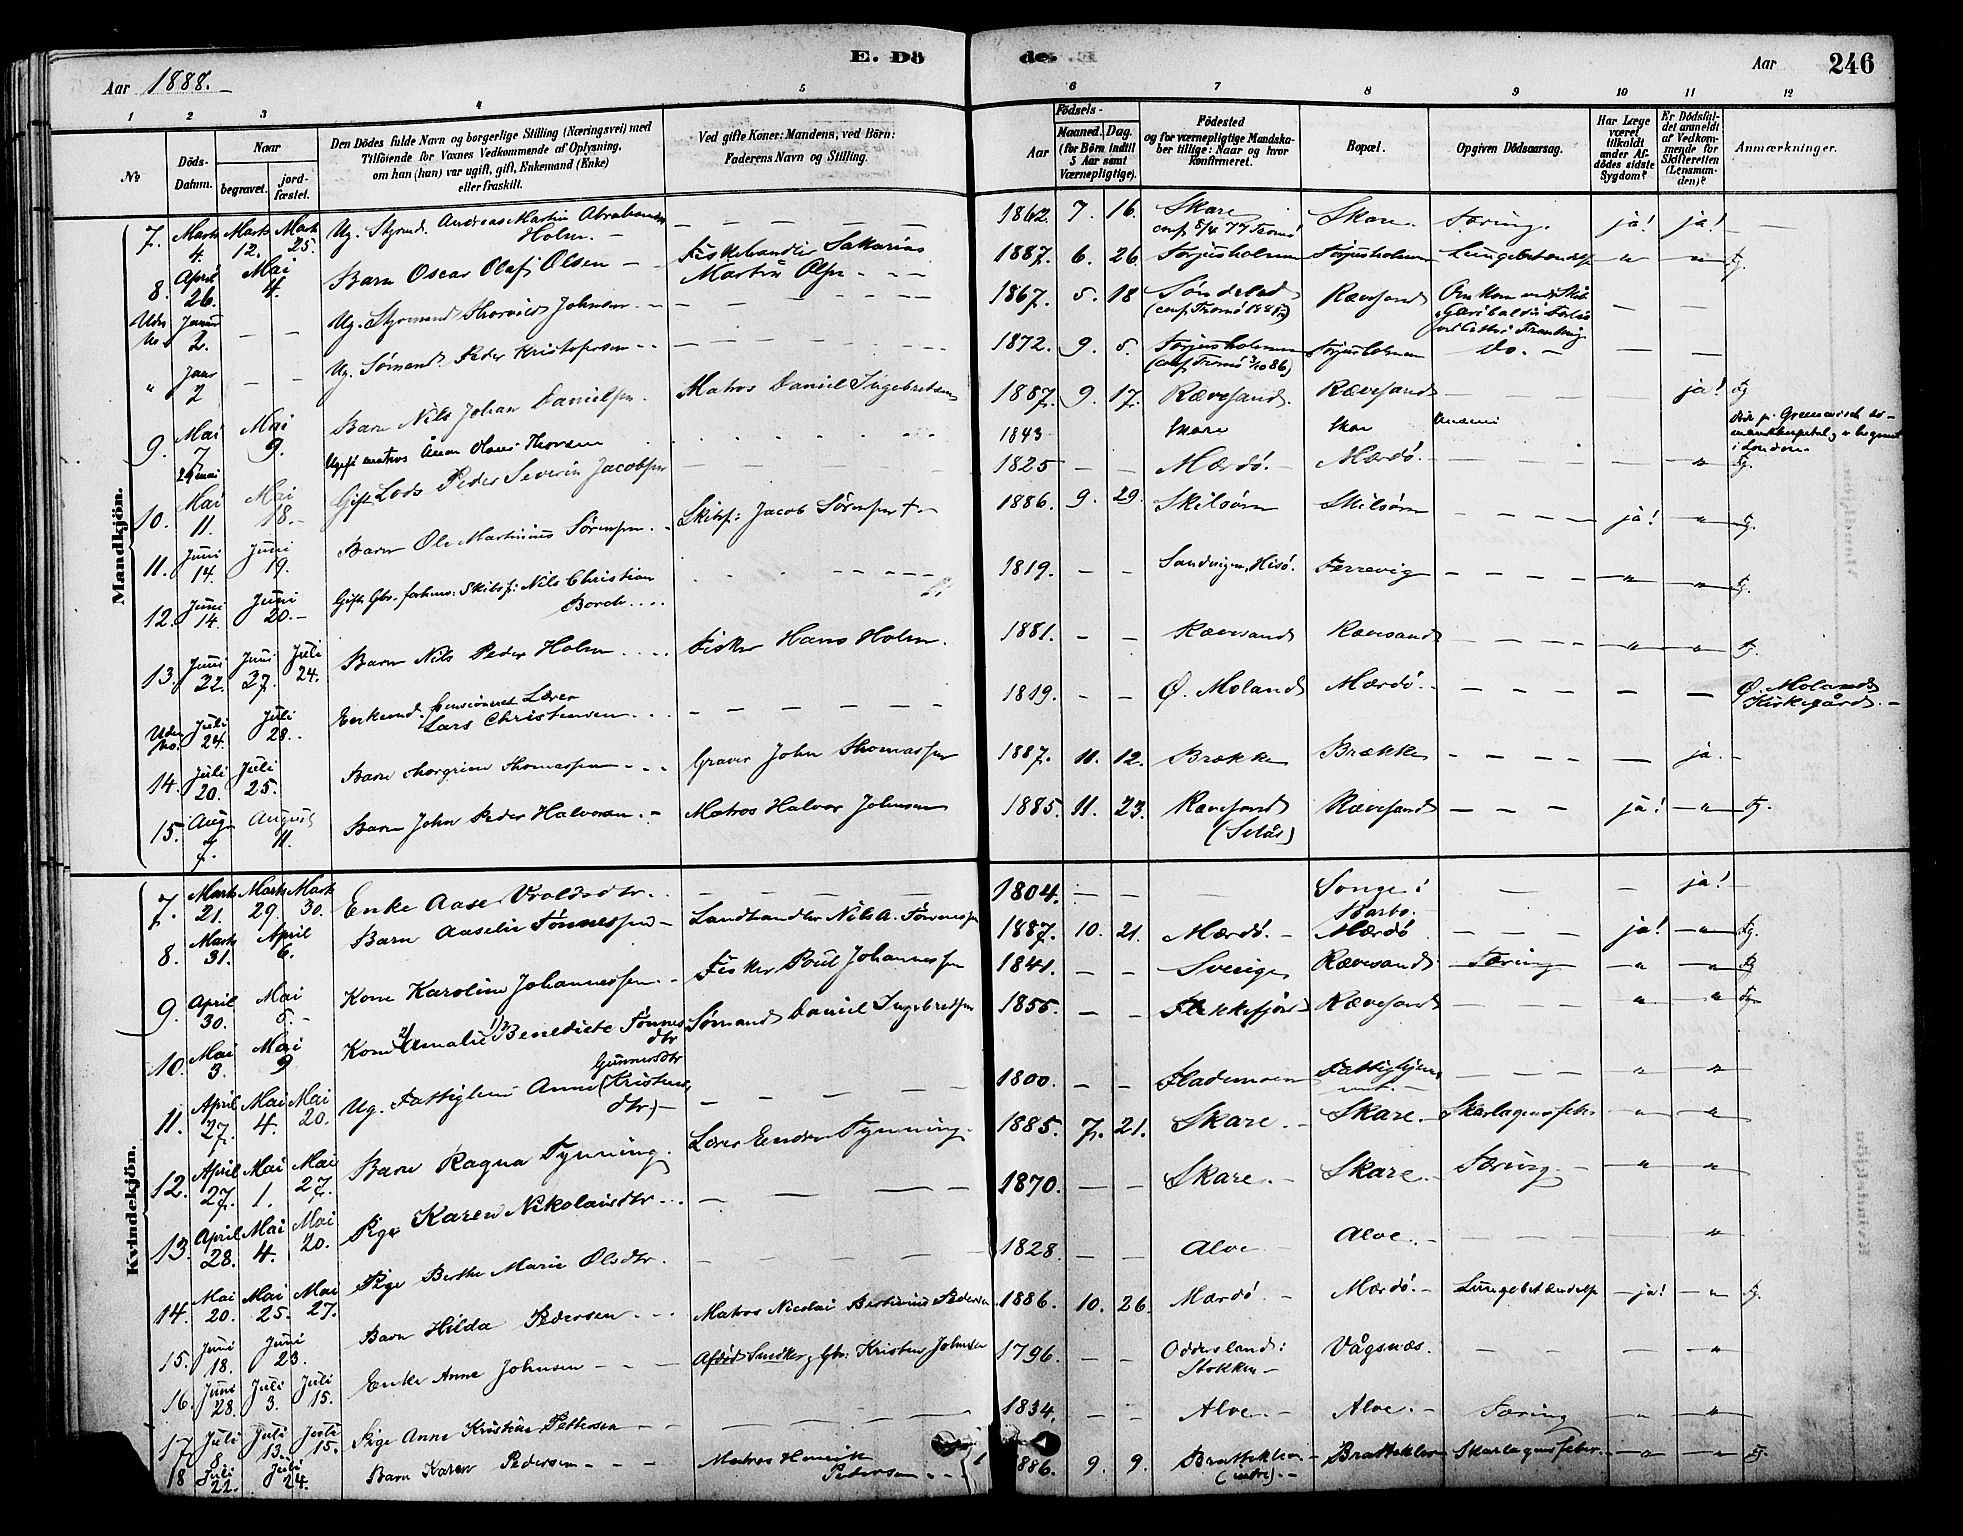 E. Dö de.
Aar 1888.
Aar 246
1 2 3 4 5 6 7 8 9 10 11 12
No
Döds-Datum.
Naar
begravet.
jord-fæstet.
Den Dödes fulde Navn og borgerlige Stilling (Næringsvei) med
Tilföiende for Voxnes Vedkommende af Oplysning,
om han (hun) var ugift, gift, Enkemand (Enke)
eller fraskilt.
Ved gifte Koner: Mandens, ved Börn:
Faderens Navn og Stilling.
Födsels-
Aar
Maaned. Dag.
(for Börn indtil
5 Aar samt
Værnepligtige).
Födested
og for værnepligtige Mandska-
ber tillige: Naar og hvor
konfirmeret.
Bopæl.
Opgiven Dödsaarsag.
Har Læge
været
tilkaldt
under Af-
dödes sidste
Sygdom?
Er Dödsfal-
det anmeldt
af Vedkom-
mende for
Skifteretten
(Lensman-
den)?
Anmærkninger.
Mandkjön.
7. Marts 4. Marts 12. Marts 25. Ug. Styrmd. Andreas Martin Abrahamsen Holm. — 1862. 7. 16. Skare conf. 8/4 77 Tromö Skare. Tæring. ja! ja!
8. April 26. Mai 4. Barn Oscar Olaf Olsen — Fiskehandler Sakarias Martin Olsen 1887. 6. 26. Torjusholmen Torjusholmen Lungebetændelse " " Fg.
Uden No. Januar 2. — — Ug. Styrmand Thorvald Johnsen — 1867. 5. 18 Söndeled (conf. Tromö 1881) Rævesand Omkom ved Skib Garibaldis Forlis ved Cette i Frankrig — —
" Januar 2 — — Ug. Sömand. Peder Kristofersen — 1872. 9. 5. Torjusholmen (conf. Tromö 3/10 86) Torjusholmen do. — — —
9. Mai 7. Mai 9. Barn Nils Johan Danielsen Matros Daniel Ingebretsen 1887. 9. 17. Rævesand. Rævesand — — ja! Fg
29 mai Ugift matros Anon Olaus Thorsen 1843 Skare Skare Död på Greenwich sö-mandshospital, er begravet i London.
10. Mai 11. Mai 18. Gift Lods Peder Severin Jacobsen 1825 — — Mærdö. Mærdö. — — " Fg.
11. Juni 14. Juni 19. Barn Ole Martinius Sörensen Skibsf: Jacob Sörensen † 1886. 9. 29. Skilsöen Skilsöen — ja! " Fg.
12. Juni 14. Juni 20. Gift Gbr. forhens: Skibsf: Nils Christian Borch 1819. — — Sandvigen, Hisö. Færrevig — " " Fg.
13. Juni 22. Juni 27. Juli 24. Barn Nils Peder Holm Fisker Hans Holm. 1881. — — Rævesand Rævesand — " " Fg.
Uden No. Juli 24. Juli 28. Enkemd. pensioneret Lærer Lars Christensen 1819. — — Ö. Moland Mærdö. — — — Ö. Molands Kirkegård.
14. Juli 20. Juli 25. Barn Thorgrim Thomassen Graver John Thomassen 1887. 11. 12. Brække Brække — — ja.
15. Aug 7. August 11. Barn John Peder Halvorsen. Matros Halvor Johnsen 1885. 11. 23. Rævesand (Selås) Rævesand — ja! " Fg.
Kvindekjön.
7. Marts 21. Marts 29. Marts 30. Enke Aase Vraldsdtr. 1804. — — — Songe i Barbo. — — ja!
8. Marts 31. April 6. Barn Aaselie Tönnessen Landhandler Nils A. Tönnessen 1887. 10. 21. Mærdö. Mærdö ja! " Fg.
9. April 30. Mai 5. Kone Karoline Johannessen Fisker Poul Johannessen 1841. — — Sverige Rævesand Tæring " " Fg
10. Mai 3. Mai 9 Kone 2) Amalie 1) Benedicte Tönnesdtr Sömand Daniel Ingebretsen 1855. — — Flekkefjord Rævesand — " " Fg.
11. April 27. Mai 4. Mai 20. Ug. Fattiglem Anne Gunnersdtr (Kristensdtr) 1800. — — Flademoen Fattighjemmet. — " "
12. April 27. Mai 1. Mai 27. Barn Ragna Tynning. Lærer Endre Tynning. 1885. 7. 21. Skare. Skare. Skarlagensfeber " "
13. April 28. Mai 4. Mai 20. Pige Karen Nikolaisdtr 1870. — — Skare. Skare. Tæring. " "
14. Mai 20. Mai 25. Mai 27. Pige Berthe Marie Olsdtr. 1828. — — Alve Alve. "
15. Juni 18. Juni 23. Barn Hilda Pedersen Matros Nicolai Bertinius Pedersen 1886. 10. 26. Mærdö. Mærdö. Lungebetændelse ja! " Fg.
16. Juni 28. Juli 3. Juli 15. Enke Anne Johnsen Afdöd Snedker, Gbr: Kristen Johnsen 1796. — — Oddersland: Stokken Vågsnæs. — — "
17. Juli 8 Juli 13. Juli 15. Pige Anne Kristine Pettersen 1834. — — Alve. Alve. Tæring " "
18 Juli 22. Juli 24. Barn Karen Pedersen Matros Henrik Pedersen 1886. 9. 9. Bratteklev (indre). Bratteklev Skarlagensfeber " " Fg.